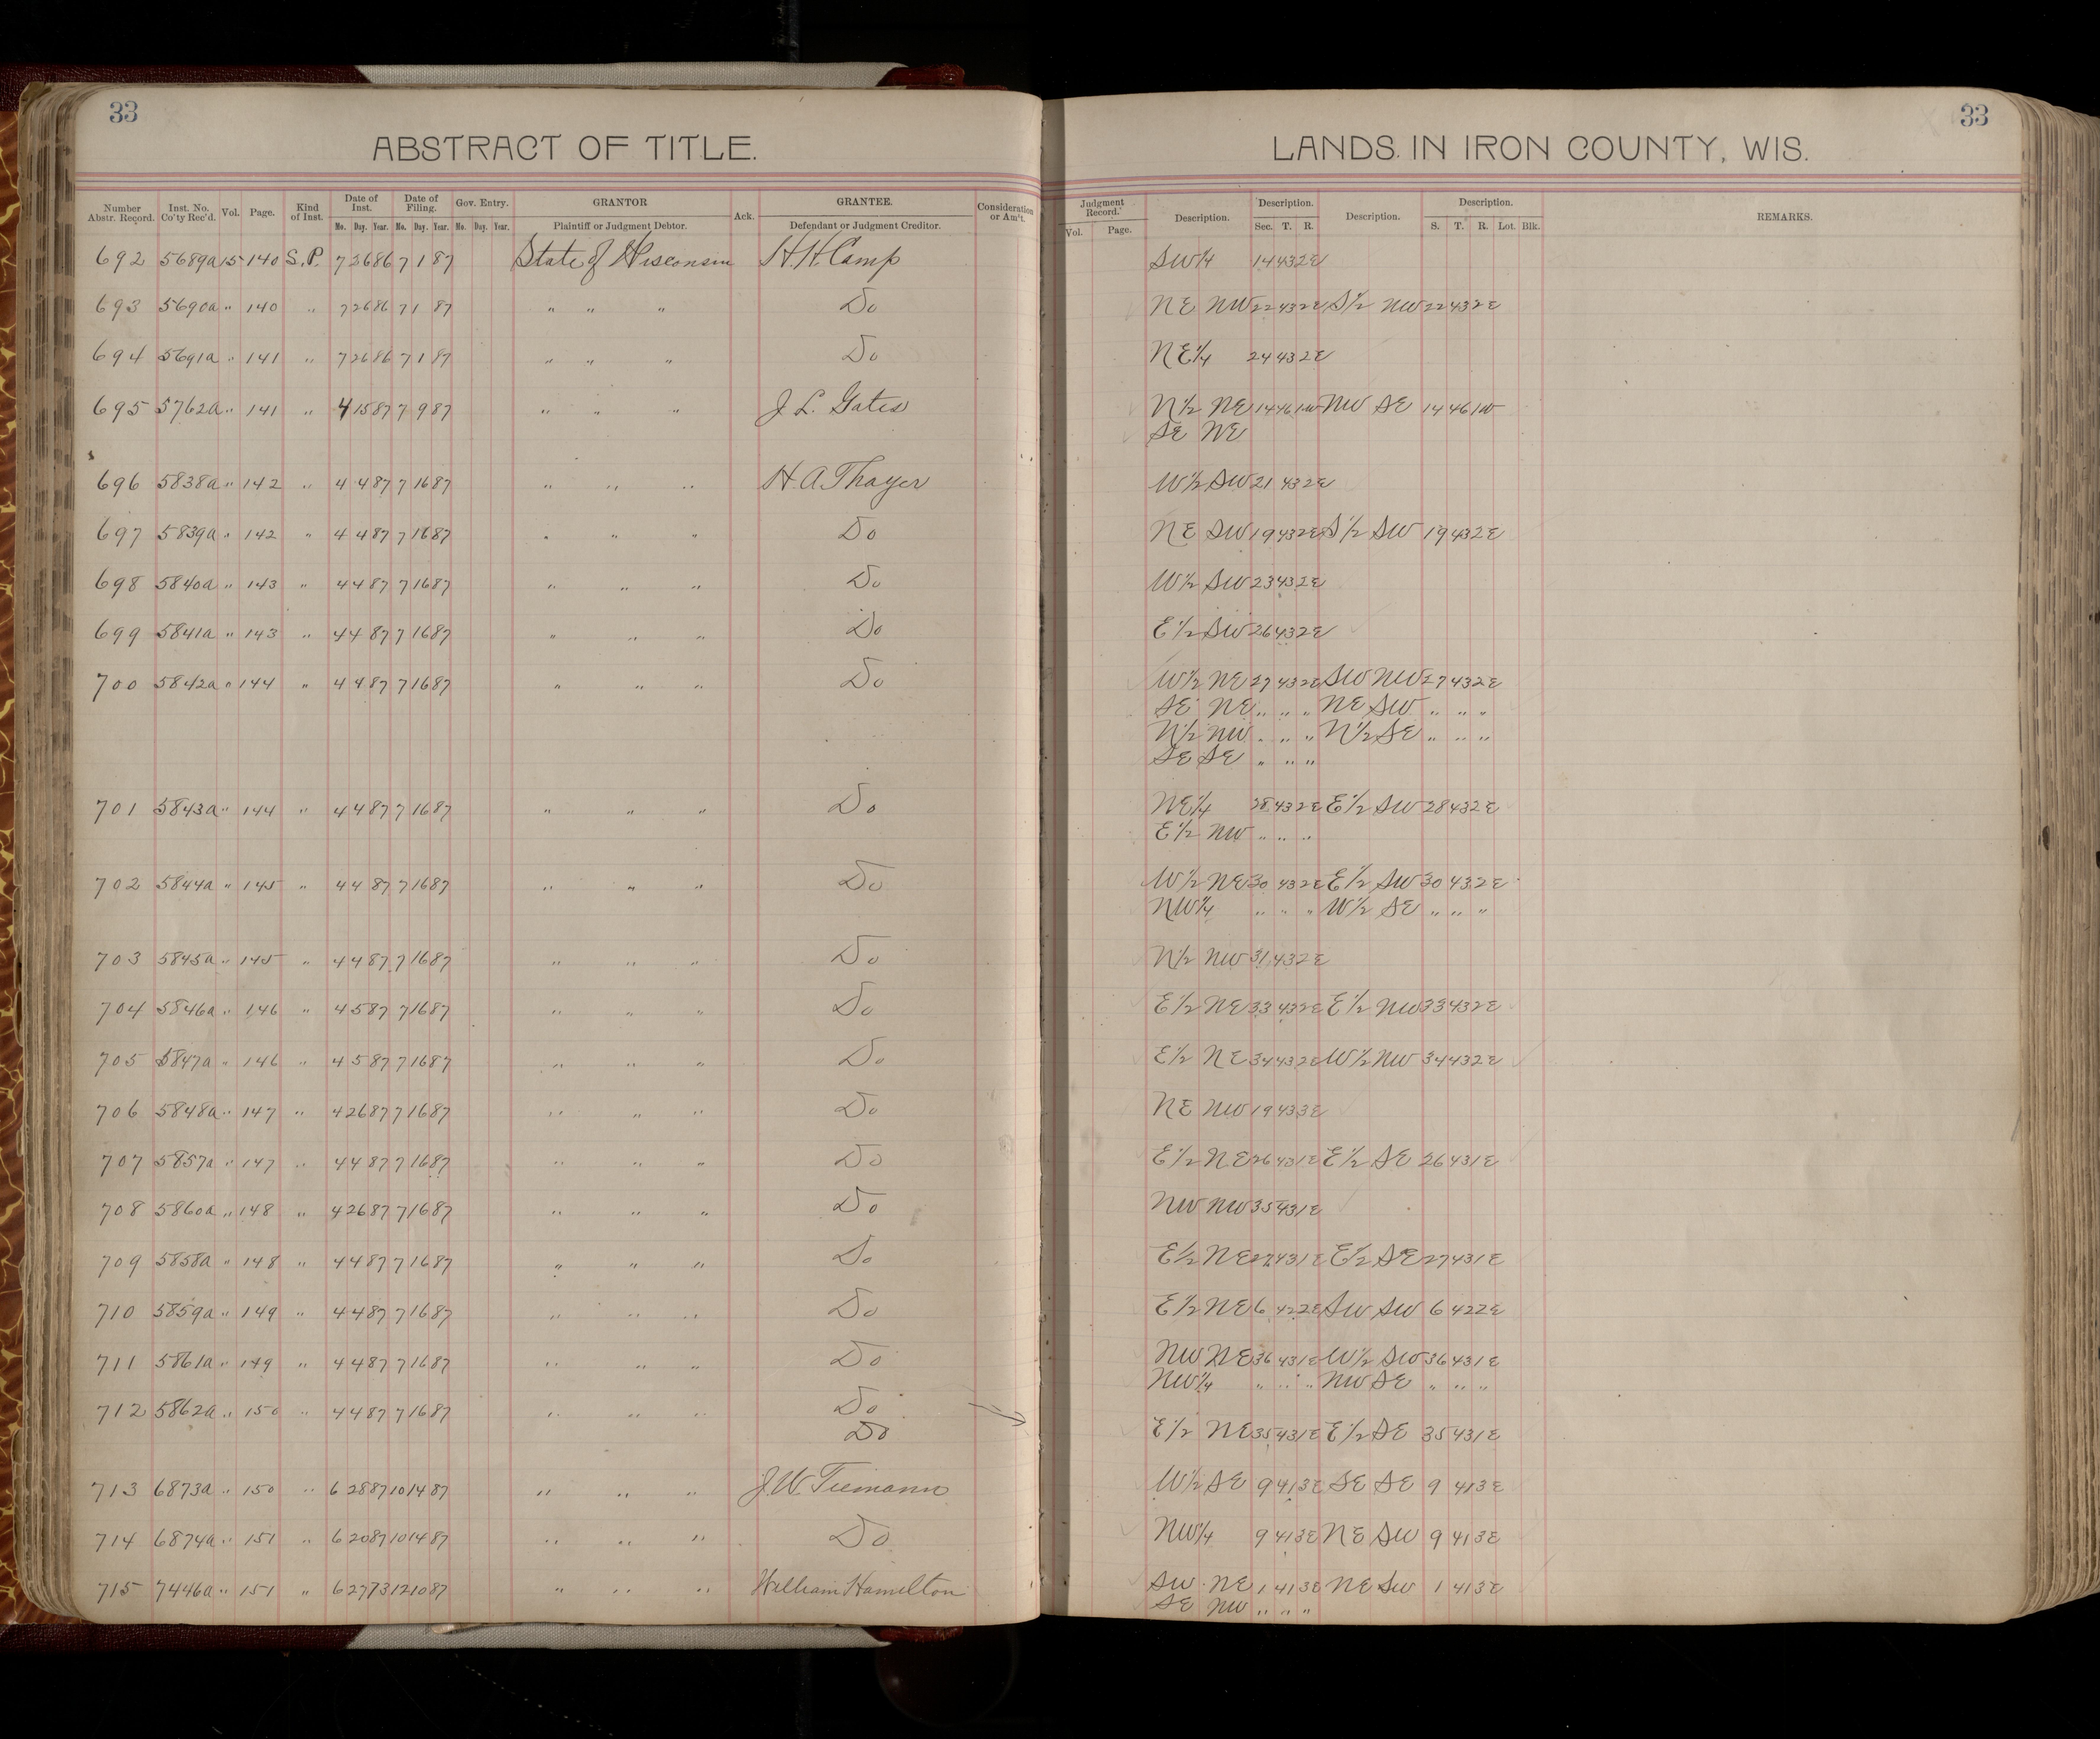 33
ABSTRACT OF TITLE.
Number Abstr. Record. Inst. No. Co'ty Rec'd. Vol. Page. Kind of Inst. Date of Inst. Mo. Day. Year. Date of Filing. Mo. Day. Year. Gov. Entry. Mo. Day. Year. GRANTOR Plaintiff or Judgment Debtor. Ack. GRANTEE. Defendant or Judgment Creditor. Consideration or Am't.
692 5689a 15 140 S.P. 7 26 86 7 1 87 State of Wisconsin H.H. Camp
693 5690a " 140 " 7 26 86 7 1 87 " " " Do
694 5691a " 141 " 7 26 86 7 1 87 " " " Do
695 5762a " 141 " 4 15 87 7 9 87 " " " J. L. Gates
696 5838a " 142 " 4 4 87 7 16 87 " " " H. A. Thayer
697 5839a " 142 " 4 4 87 7 16 87 " " " Do
698 5840a " 143 " 4 4 87 7 16 87 " " " Do
699 5841a " 143 " 4 4 87 7 16 87 " " " Do
700 5842a " 144 " 4 4 87 7 16 87 " " " Do
701 5843a " 144 " 4 4 87 7 16 87 " " " Do
702 5844a " 145 " 4 4 87 7 16 87 " " " Do
703 5845a " 145 " 4 4 87 7 16 87 " " " Do
704 5846a " 146 " 4 5 87 7 16 87 " " " Do
705 5847a " 146 " 4 5 87 7 16 87 " " " Do
706 5848a " 147 " 4 26 87 7 16 87 " " " Do
707 5857a " 147 " 4 4 87 7 16 87 " " " Do
708 5860a " 148 " 4 26 87 7 16 87 " " " Do
709 5858a " 148 " 4 4 87 7 16 87 " " " Do
710 5859a " 149 " 4 4 87 7 16 87 " " " Do
711 5861a " 149 " 4 4 87 7 16 87 " " " Do
712 5862a " 150 " 4 4 87 7 16 87 " " " Do
Do
713 6873a " 150 " 6 28 87 10 14 87 " " " J. W. Tiemann
714 6874a " 151 " 6 20 87 10 14 87 " " " Do
715 7446a " 151 " 6 27 73 12 10 87 " " " William Hamilton
33
LANDS IN IRON COUNTY, WIS.
Judgment Record. Vol. Page. Description. Description. Sec. T. R. Description. Description. S. T. R. Lot. Blk. REMARKS.
SW 1/4 14 43 2E
NE NW 22 43 2E S 1/2 NW 22 43 2E
NE 1/4 24 43 2E
N 1/2 NE 14 46 1W NW SE 14 46 1W
SE NE
W 1/2 SW 21 43 2E
NE SW 19 43 2E S 1/2 SW 19 43 2E
W 1/2 SW 23 43 2E
E 1/2 SW 26 43 2E
W 1/2 NE 27 43 2E SW NW 27 43 2E
SE NE " " " NE SW " " "
N 1/2 NW " " " N 1/2 SE " " "
SE SE " " "
NE 1/4 28 43 2E E 1/2 SW 28 43 2E
E 1/2 NW " " "
W 1/2 NE 30 43 2E E 1/2 SW 30 43 2E
NW 1/4 " " " W 1/2 SE " " "
N 1/2 NW 31 43 2E
E 1/2 NE 33 43 2E E 1/2 NW 33 43 2E
E 1/2 NE 34 43 2E W 1/2 NW 34 43 2E
NE NW 19 43 3E
E 1/2 NE 26 43 1E E 1/2 SE 26 43 1E
NW NW 35 43 1E
E 1/2 NE 27 43 1E E 1/2 SE 27 43 1E
E 1/2 NE 6 42 2E SW SW 6 42 2E
NW NE 36 43 1E W 1/2 SW 36 43 1E
NW 1/4 " " " NW SE " " "
E 1/2 NE 35 43 1E E 1/2 SE 35 43 1E
W 1/2 SE 9 41 3E SE SE 9 41 3E
NW 1/4 9 41 3E NE SW 9 41 3E
SW NE 1 41 3E NE SW 1 41 3E
SE NW " " "